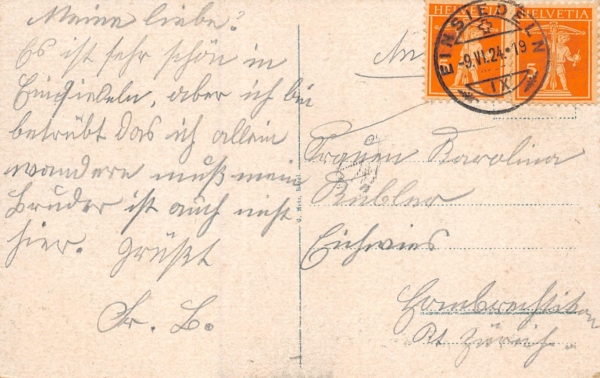 Meine liebe!
Es ist sehr schön in
Einsiedeln, aber ich bin
betrübt das ich allein
wandere muß mein
Bruder ist auch nicht
hier. Grüßt
Fr. B.
HELVETIA HELVETIA
EINSIEDELN
-9.VI.24.-19
IX
5
An
Frauen Karolina
Bühler
Eichwies
Hombrechtikon
Kt Zürich.